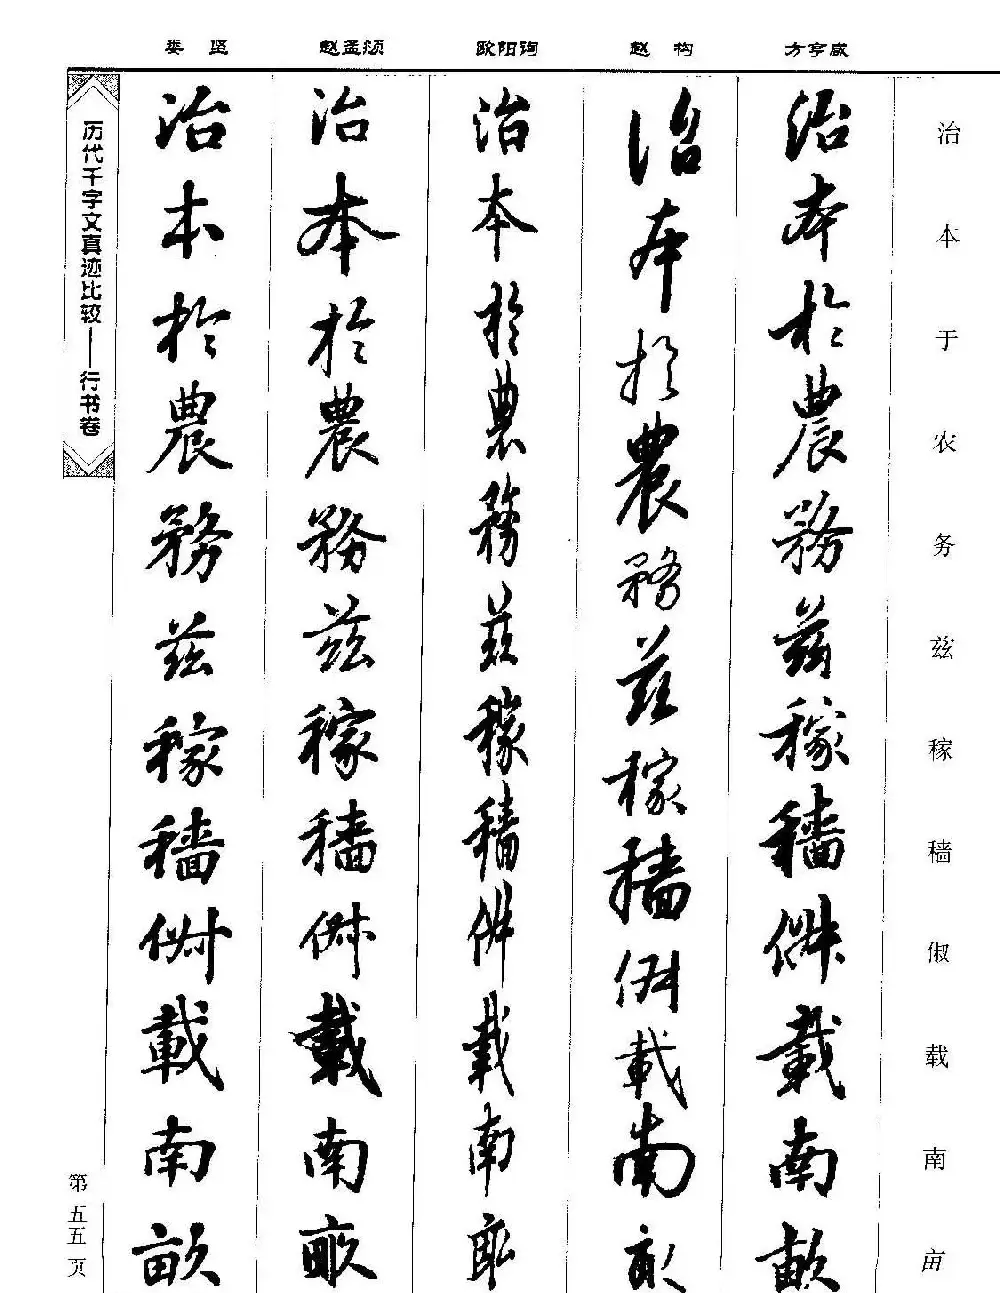 娄坚 赵孟頫 欧阳询 赵构 方亨咸
治本于农务兹稼穑俶载南亩
治本於農務茲稼穡俶載南畝
治本於農務茲稼穡俶載南畝
治本於農務茲稼穡俶載南畝
治本於農務茲稼穡俶載南畝
治本於農務茲稼穡俶載南畝
历代千字文真迹比较——行书卷
第五五页